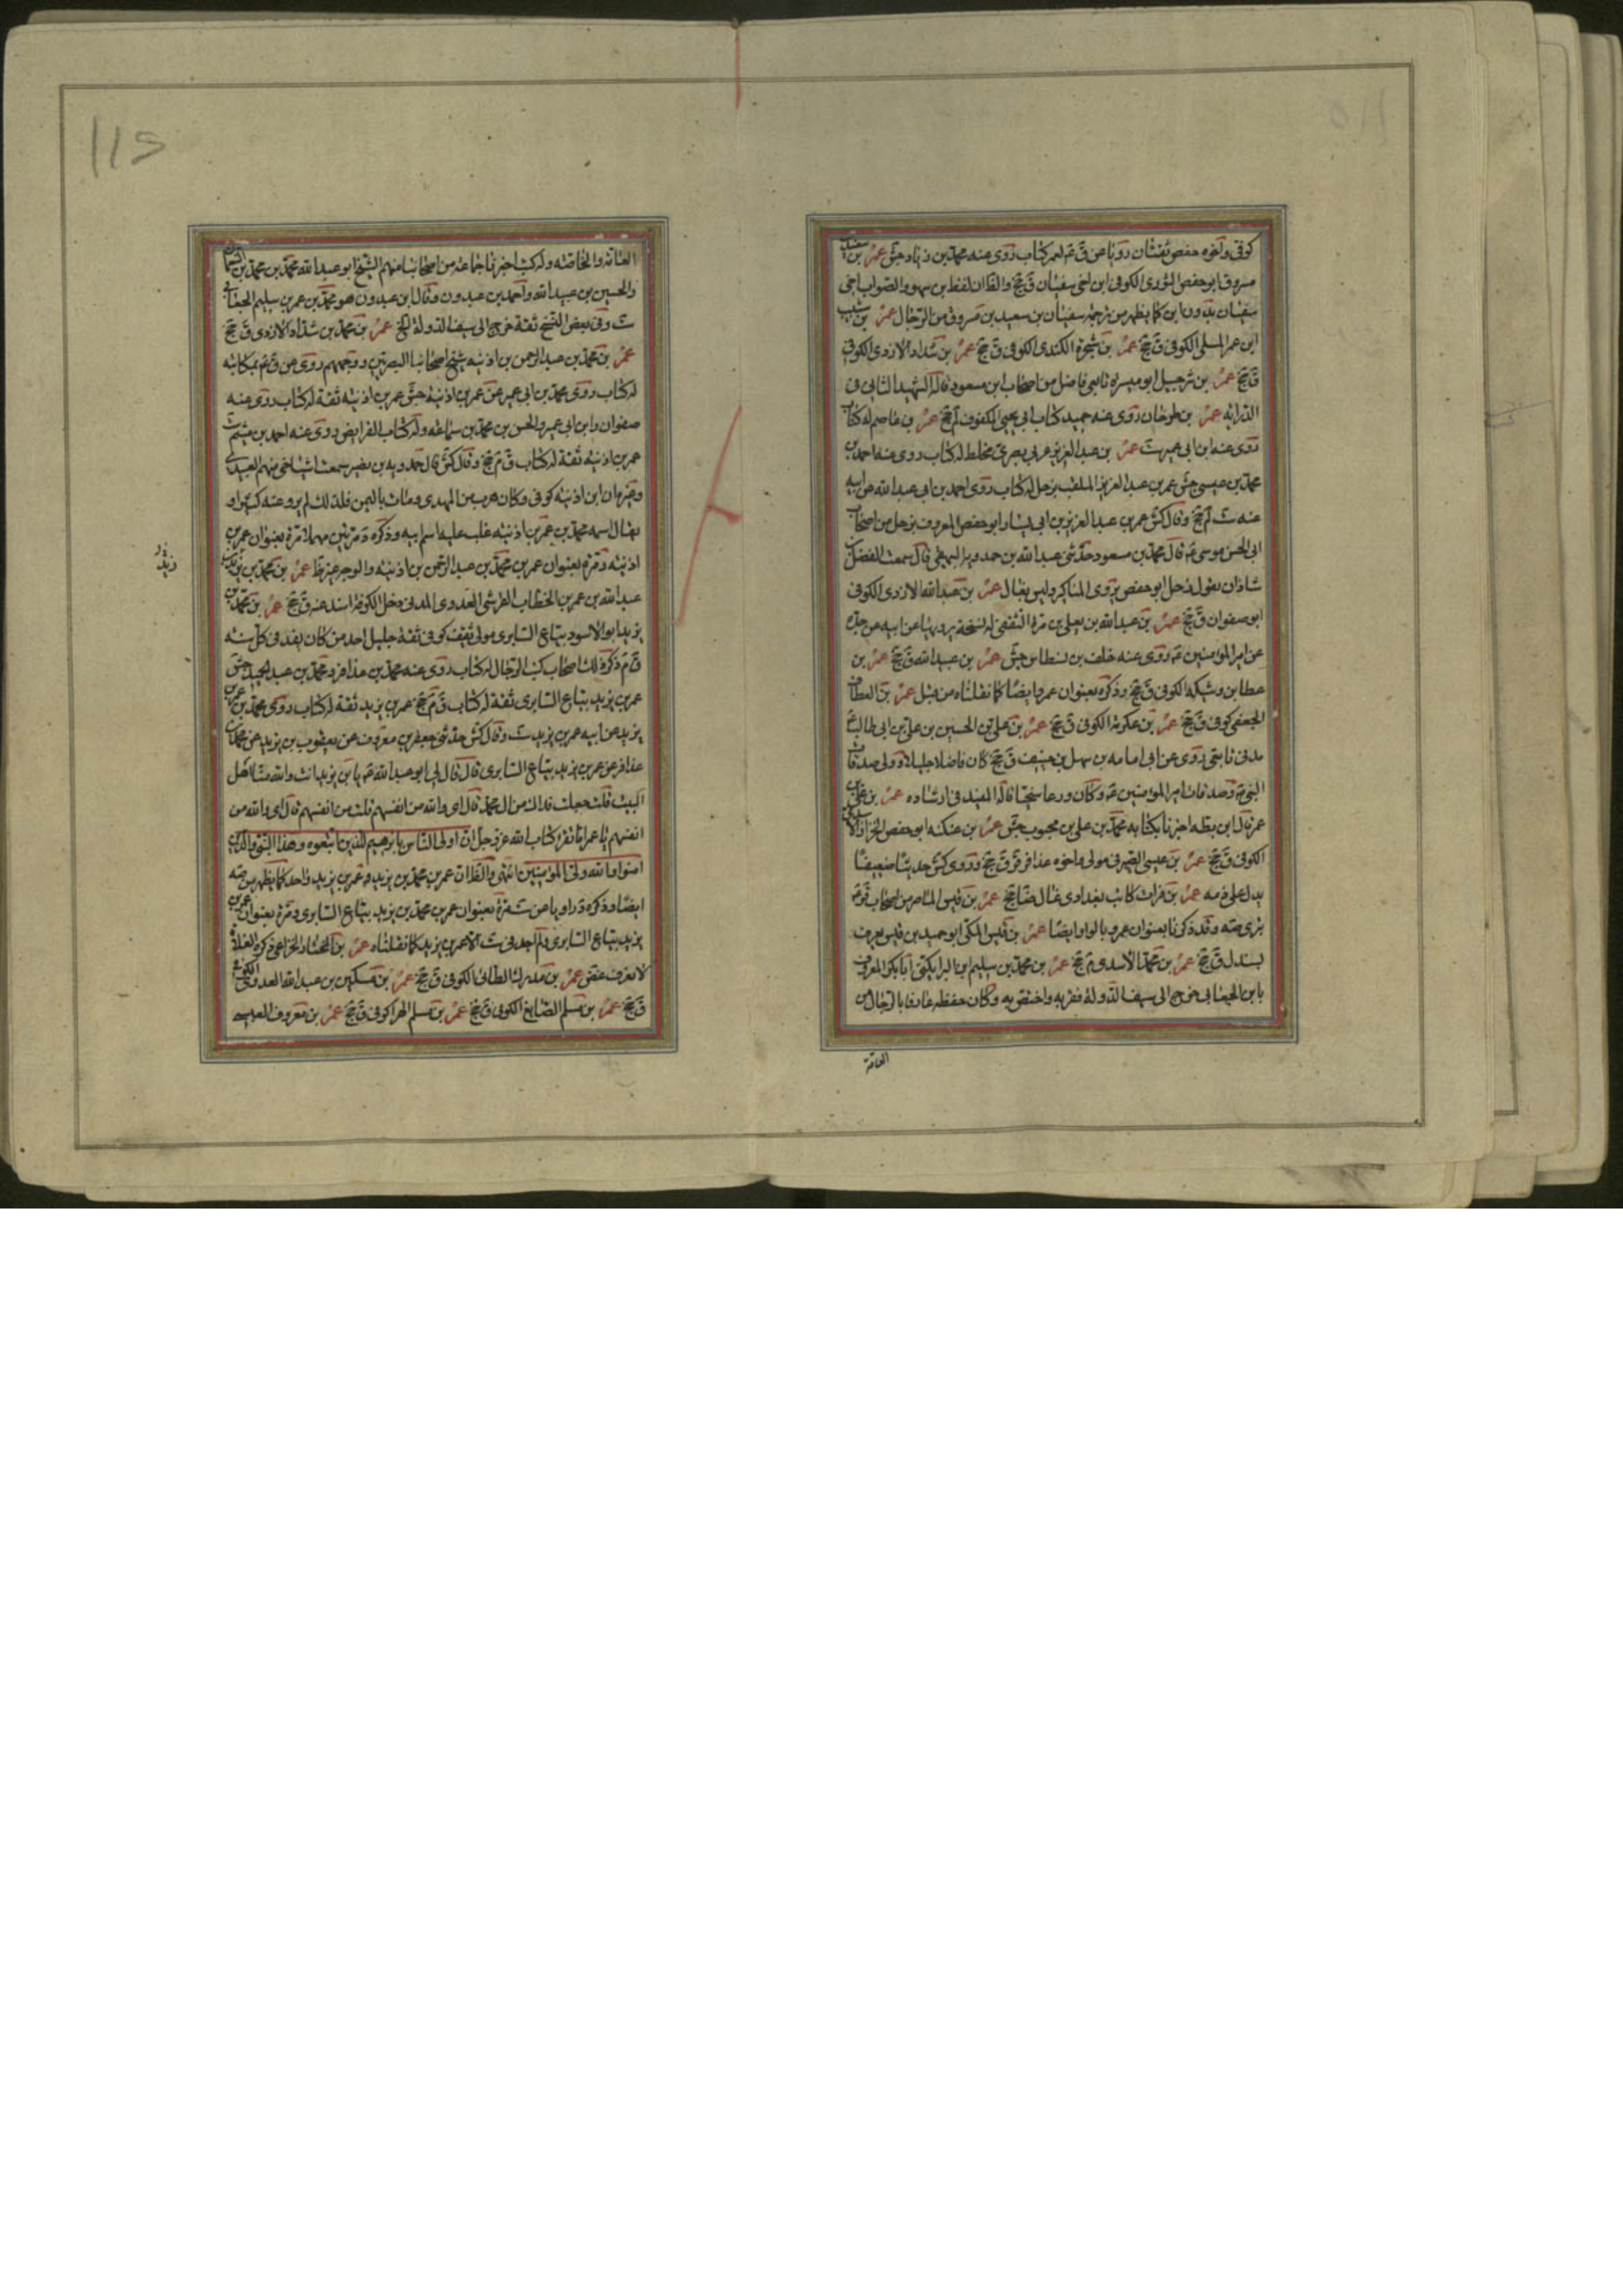 كوفى واخوه حفص ثقتان رويا عن ق ع لعمر كتاب روى عنه محمد بن زياد جش عمر بن سفين
مسروق ابو حفص الثورى الكوفى ابن اخى سفيان ق جخ والظان لفظ بن سهو والصواب اخى
سفيان بدون ابن كما يظهر من ترجمة سفيان بن سعيد بن مسروق من الرجال عمر بن شبيب
ابن عمر المسلى الكوفى ق جخ عمر بن شجرة الكندى الكوفى ق جخ عمر بن شداد الازدى الكوفى
ق جخ عمر بن شرحبيل ابو ميسرة تابعى فاضل من اصحاب ابن مسعود قاله الشهيد الثانى فى
الدراية عمر بن طرخان روى عنه حميد كتاب ابى يحيى المكفوف لم جخ عمر بن عاصم له كتاب
روى عنه ابن ابى عمير ست عمر بن عبد العزيز عربى بصرى مخلط له كتاب روى عنه احمد بن
محمد بن عيسى جش عمر بن عبد العزيز الملقب بزحل له كتاب روى احمد بن ابى عبد الله عن ابيه
عنه ست لم جخ وقال كش عمر بن عبد العزيز بن ابى بشار ابو حفص المعروف بزحل من اصحاب
ابى الحسن موسى ع قال محمد بن مسعود حدثنى عبد الله بن حمدويه البيهقى قال سمعت الفضل بن
شاذان يقول زحل ابو حفص يروى المناكير وليس بغال عمر بن عبد الله الازدى الكوفى
ابو صفوان ق جخ عمر بن عبد الله بن يعلى بن مرة الثقفى له نسخة يرويها عن ابيه عن جده
عن امير المؤمنين ع روى عنه خلف بن نسطاس جش عمر بن عبيد الله ق جخ عمر بن
عطا بن وشيكة الكوفى ق جخ وذكره بعنوان عمرو ايضا كما نقلناه من قبل عمر بن العطاف
الجعفى كوفى ق جخ عمر بن عكرمة الكوفى ق جخ عمر بن على بن الحسين بن على بن ابى طالب ع
مدنى تابعى روى عن ابى امامه بن سهل بن حنيف ق جخ كان فاضلا جليلا وولى صدقات
النبى ص وصدقات امير المؤمنين ع وكان ورعا سخيا قاله المفيد فى ارشاده عمر بن على بن
عمر قال ابن بطه اخبرنا بكتابه محمد بن على بن محبوب جش عمر بن عنكثه ابو حفص الخزاز
الكوفى ق جخ عمر بن عيسى الصيرفى مولى واخوه عذافر ق ق جخ وروى كش حديثا ضعيفا
يدل على ذمه عمر بن فرات كاتب بغدادى غال ضا جخ عمر بن قيس الماصر من اصحاب قر
بترى صه وقد ذكرنا بعنوان عمرو بالواو ايضا عمر بن قيس المكى ابو حميد بن قيس يعرف
بسندل ق جخ عمر بن محمد الاسدى م جخ عمر بن محمد بن سليم ابن البرا يكنى ابا بكر المعروف
بابن الجعابى خرج الى سيف الدولة فقربه واختص به وكان حفظه عارفا بالرجال من
العامة
العامة والخاصة وله كتب اخبرنا جماعة من اصحابنا منهم الشيخ ابو عبد الله محمد بن محمد بن النعمان
والحسين بن عبيد الله واحمد بن عبدون وقال ابن عبدون هو محمد بن عمر بن سليم الجعابى
ست وفى بعض النسخ ثقة خرج الى سيف الدولة الخ عمر بن محمد بن شداد الازدى ق جخ
عمر بن محمد بن عبد الرحمن بن اذينه شيخ اصحابنا البصريين ووجههم روى عن ق ع بمكاتبه
له كتاب روى محمد بن ابى عمير عن عمر بن اذينه جش عمر بن اذينه ثقة له كتاب روى عنه
صفوان وابن ابى عمير والحسن بن محمد بن سماعه وله كتاب الفرايض روى عنه احمد بن ميثم ست
عمر بن اذينه ثقة له كتاب ق م جخ وقال كش قال حمدويه بن نصير سمعت اشياخى منهم العبيدى
وغيره ان ابن اذينه كوفى وكان هرب من المهدى ومات باليمن فلذلك لم يرو عنه كثير او
يقال اسمه محمد بن عمر بن اذينه غلب عليه اسم ابيه وذكره د مرتين مهملا مرة بعنوان عمر بن
اذينه ومرة بعنوان عمر بن محمد بن عبد الرحمن بن اذينه والوجه غير ظ عمر بن محمد بن زيد بن
عبد الله بن عمر بن الخطاب القرشى العدوى المدنى دخل الكوفة اسند عنه ق جخ عمر بن محمد بن
يزيد ابو الاسود بياع السابرى مولى ثقيف كوفى ثقة جليل احد من كان يفد فى كل سنه
ق م ذكر ذلك اصحاب كتب الرجال له كتاب روى عنه محمد بن عذافر ومحمد بن عبد الحميد جش
عمر بن يزيد بياع السابرى ثقة له كتاب ق م جخ عمر بن يزيد ثقة له كتاب روى محمد بن عمر بن
يزيد عن ابيه عمر بن يزيد ست وقال كش حدثنى جعفر بن معروف عن يعقوب بن يزيد عن محمد بن
عذافر عن عمر بن يزيد بياع السابرى قال قال لى ابو عبد الله ع يا بن يزيد انت والله منا اهل
البيت قلت جعلت فداك من ال محمد قال اى والله من انفسهم قلت من انفسهم قال اى والله من
انفسهم يا عمر اما تقرا كتاب الله عز وجل ان اولى الناس بابرهيم للذين اتبعوه وهذا النبى والذين
امنوا والله ولى المؤمنين انتهى والظ ان عمر بن محمد بن يزيد وعمر بن يزيد واحد كما يظهر من صه
ايضا وذكره د راويا عن ست مرة بعنوان عمر بن محمد بن يزيد بياع السابرى ومرة بعنوان عمر بن
يزيد بياع السابرى ولم اجد فى ست الا عمر بن يزيد كما نقلناه عمر بن المختار الخزاعى ذكره الغلاة
لا يعرف غض عمر بن مدرك الطائى الكوفى ق جخ عمر بن مسكين بن عبد الله العدوى الكوفى
ق جخ عمر بن مسلم الصايغ الكوفى ق جخ عمر بن مسلم الهرا كوفى ق جخ عمر بن معروف العبسى